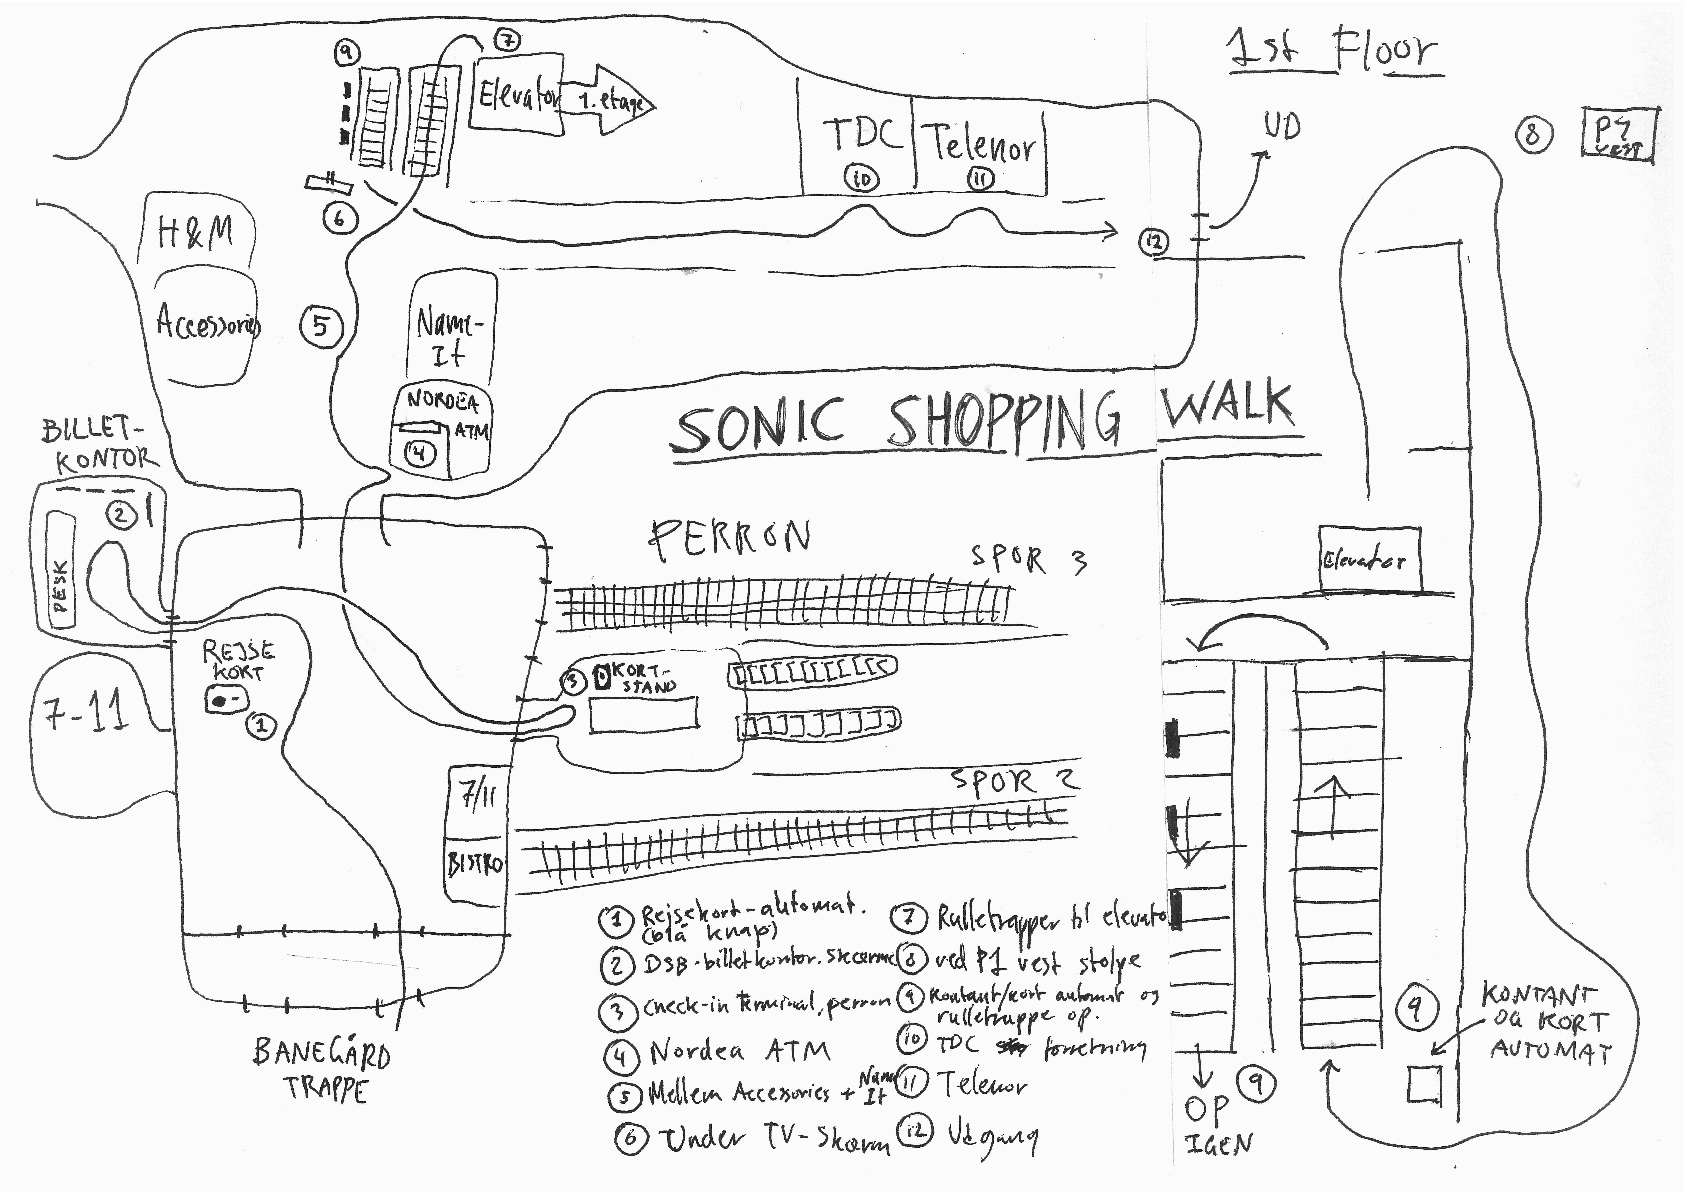 1st Floor
9
7
Elevator
1. etage
UD
8
P1
VEST
TDC
10
Telenor
11
6
12
H&M
Accessories
5
Name-
It
NORDEA
ATM
4
SONIC SHOPPING WALK
BILLET-
KONTOR
2
DESK
PERRON
SPOR 3
Elevator
REJSE
KORT
1
3
KORT-
STAND
7-11
7/11
BISTRO
SPOR 2
BANEGÅRD
TRAPPE
1 Rejsekort-automat.
(blå knap)
2 DSB-billetkontor. skærme
3 Check-in terminal, perron
4 Nordea ATM
5 Mellem Accessories + Name
It
6 Under TV-Skærm
7 Rulletrapper til elevator
8 ved P1 vest stolpe
9 Kontant/kort automat og
rulletrappe op.
10 TDC forretning
11 Telenor
12 Udgang
9
OP
IGEN
9
KONTANT
OG KORT
AUTOMAT